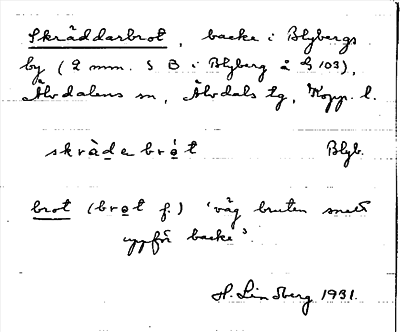 Skräddarbrot, backe i Blybergs
by (2 mm. S B i Blyberg å G 103),
Älvdalens sn, Älvdals tg, Kopp. l.
skrà̠de brò̠t Blyb.
brot (bro̠t f.) 'väg bruten snett
uppför backe'.
H. Lindberg 1931.